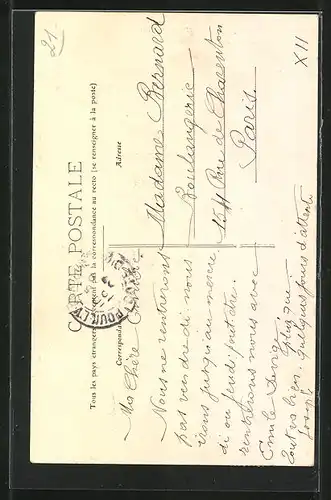 21
XII
CARTE POSTALE
Tous les pays étrangers n'acceptent pas la correspondance au recto (se renseigner à la poste)
Correspondance
Adresse
POUILLY
Ma Chère
Nous ne rentrerons
pas vendredi nous
irons jusqu'au mercre
di ou jeudi peut être.
rentrerons nous avec
Emile Désiré.
tout va bien.
Joseph
quelques jours d'attente
Madame Bernard
Boulangerie
Rue de Charenton
Paris.